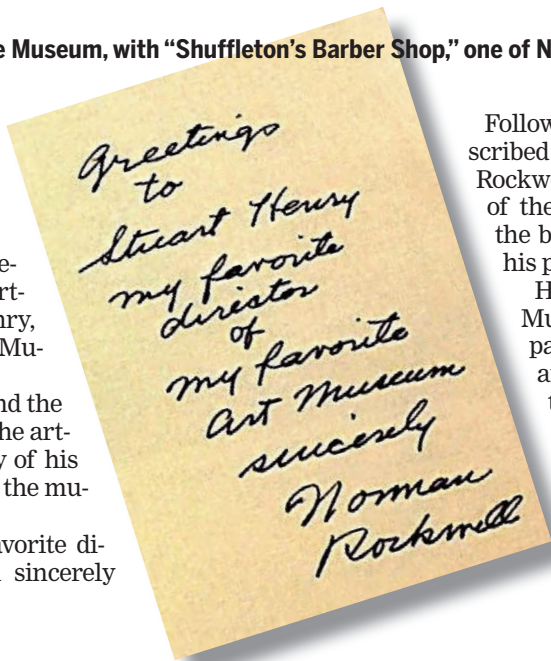 e Museum, with “Shuffleton’s Barber Shop,” one of N
e-
rt-
nry,
Mu-
nd the
he art-
y of his
the mu-
vorite di-
sincerely
Greetings
to
Stuart Henry
my favorite
director
of
my favorite
Art Museum
sincerely
Norman
Rockwell
Follow
scribed
Rockw
of the
the b
his p
H
Mu
pa